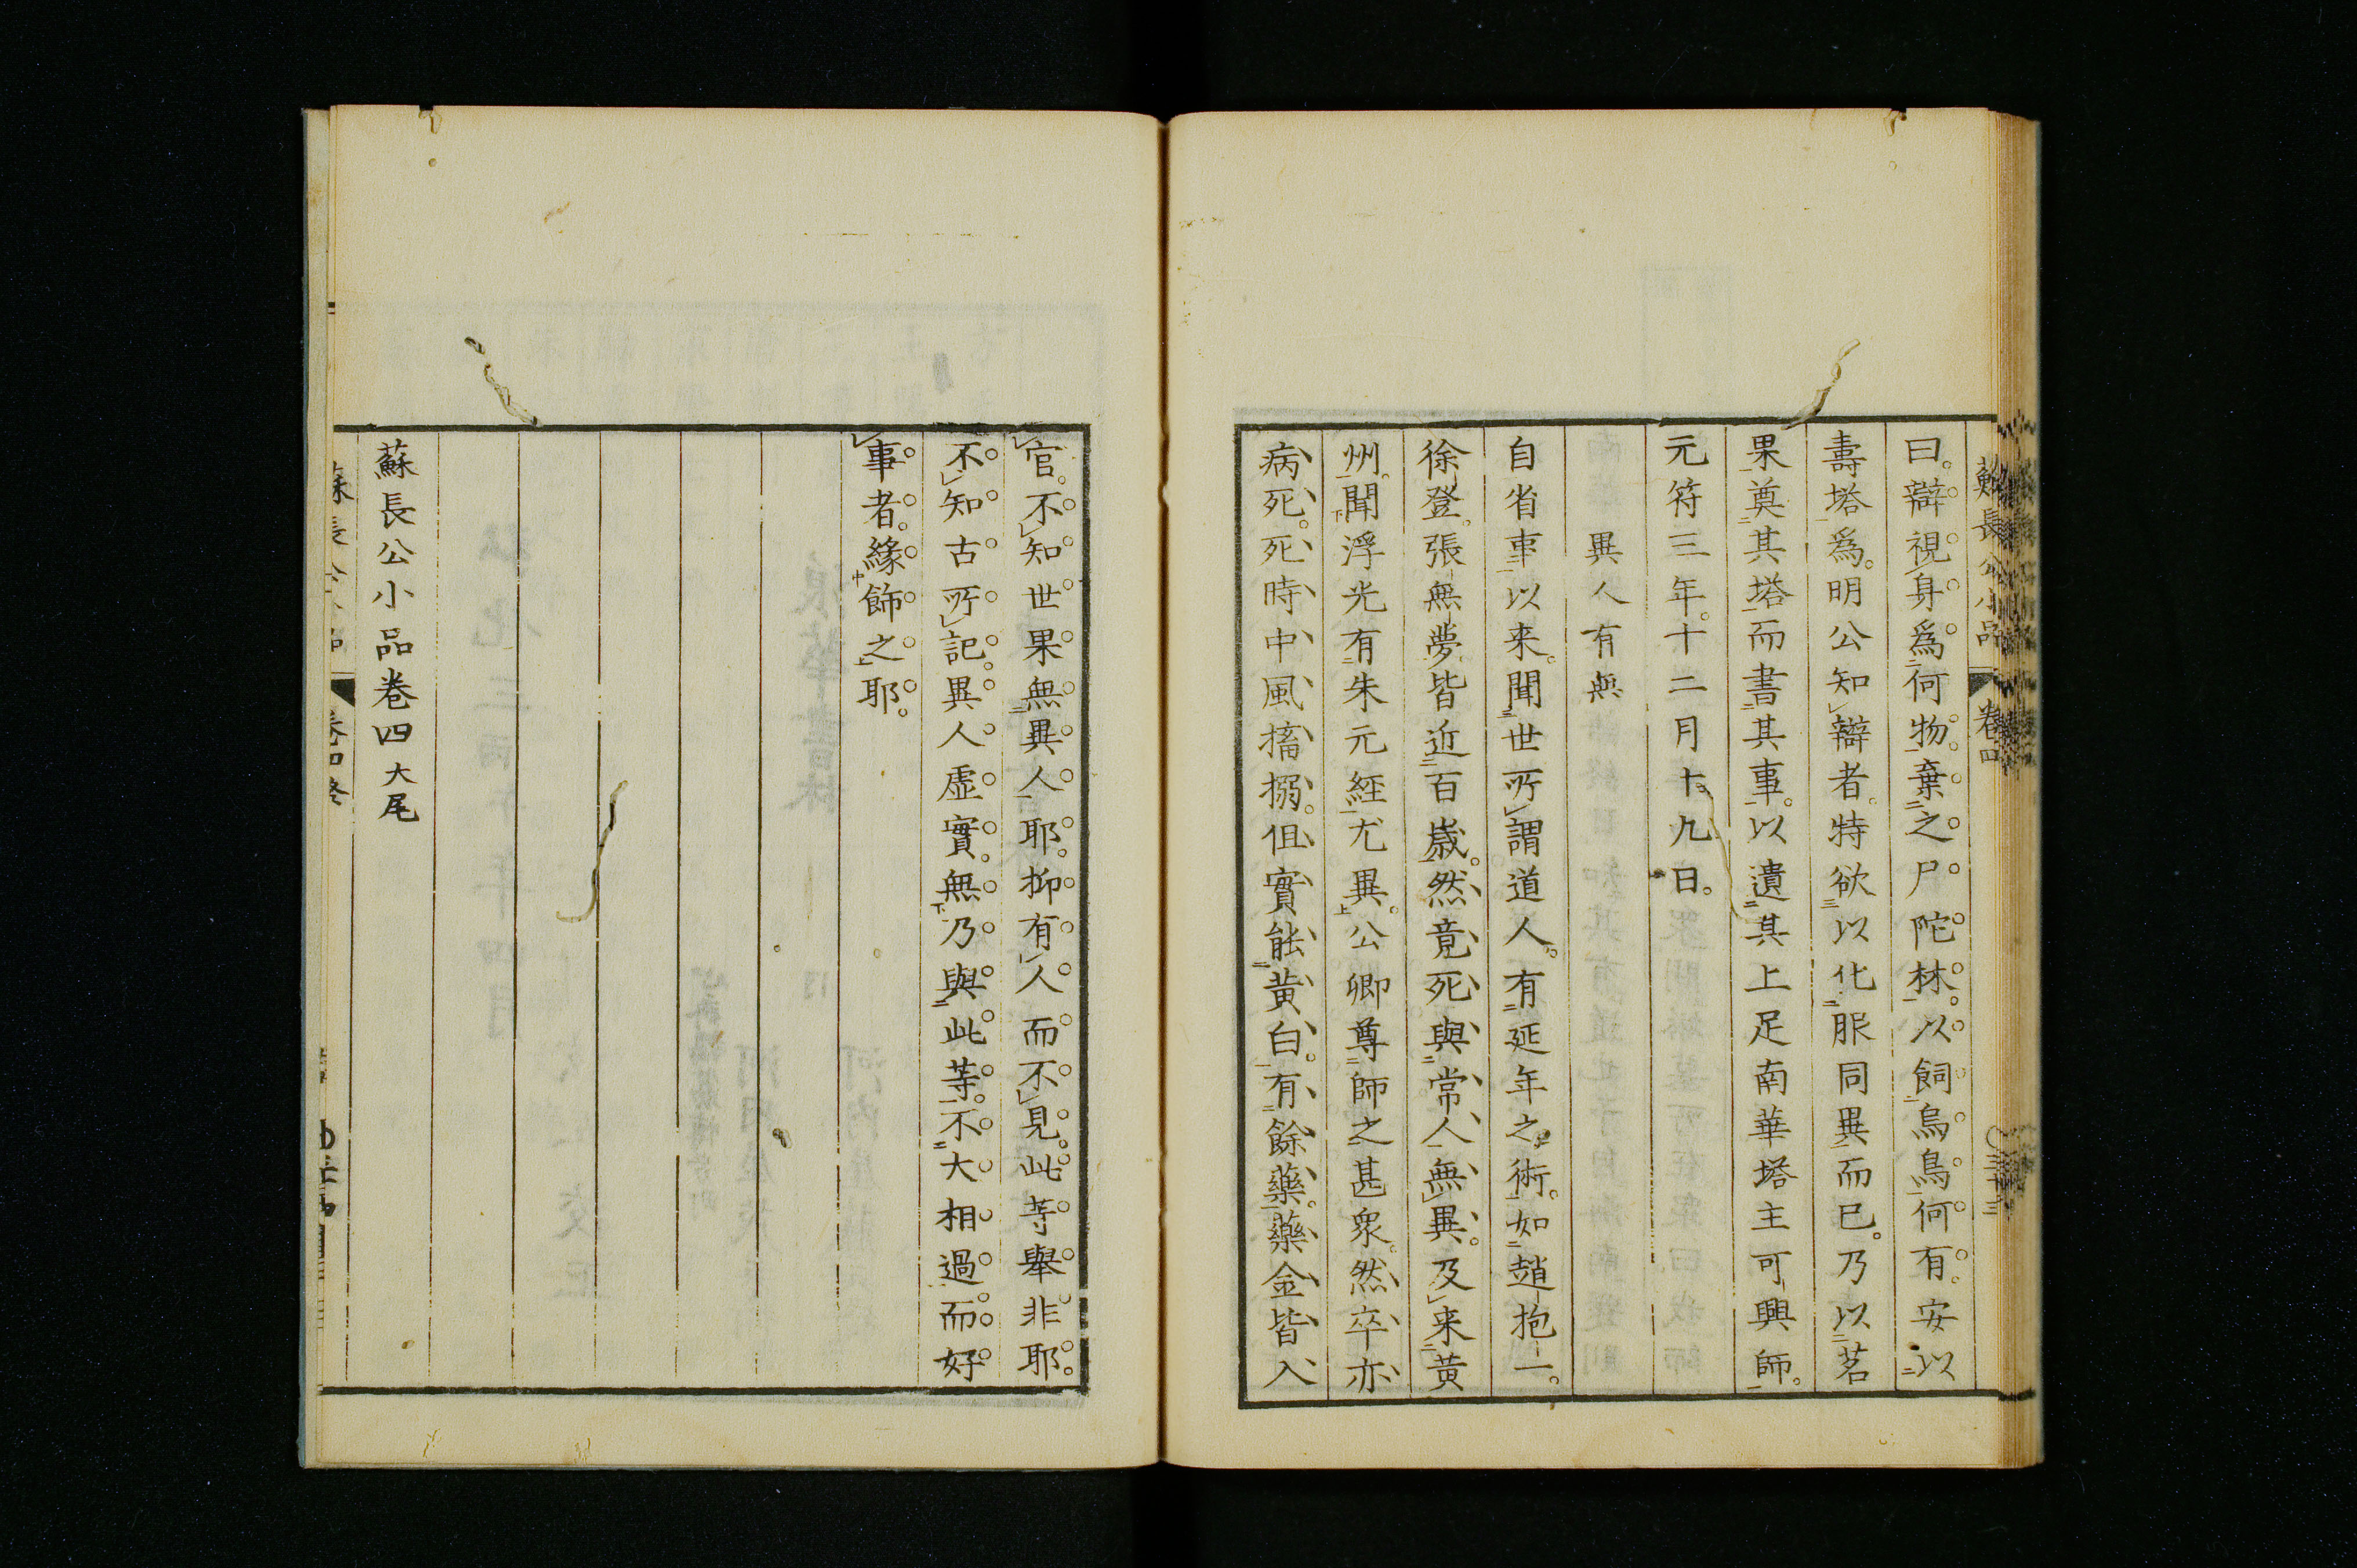 蘇長公小品 卷四
曰辯視身爲何物棄之尸陀林以飼烏鳥何有安以
壽塔爲明公知辯者特欲以化服同異而已乃以茗
果奠其塔而書其事以遺其上足南華塔主可興師
元符三年十二月十九日
異人有無
自省事以来聞世所謂道人有延年之術如趙抱一
徐登張無夢皆近百歲然竟死與常人無異及来黄
州聞浮光有朱元經尤異公卿尊師之甚衆然卒亦
病死死時中風搐搦但實能黄白有餘藥藥金皆入
官不知世果無異人耶抑有人而不見此等舉非耶
不知古所記異人虛實無乃與此等不大相過而好
事者緣飾之耶
蘇長公小品卷四大尾